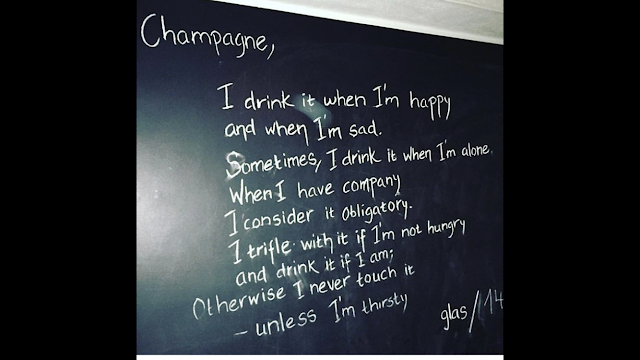 Champagne,
I drink it when I'm happy
and when I'm sad.
Sometimes, I drink it when I'm alone.
When I have company
I consider it obligatory.
I trifle with it if I'm not hungry
and drink it if I am;
Otherwise I never touch it
- unless I'm thirsty
glas/14